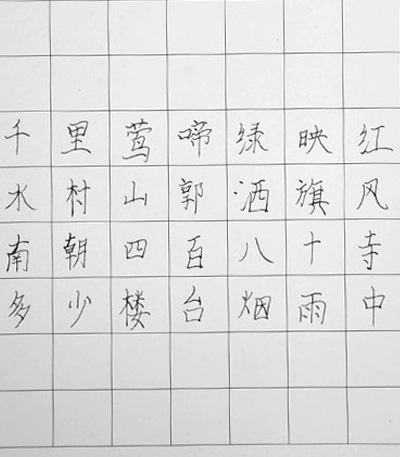 千里莺啼绿映红
水村山郭洒旗风
南朝四百八十寺
多少楼台烟雨中